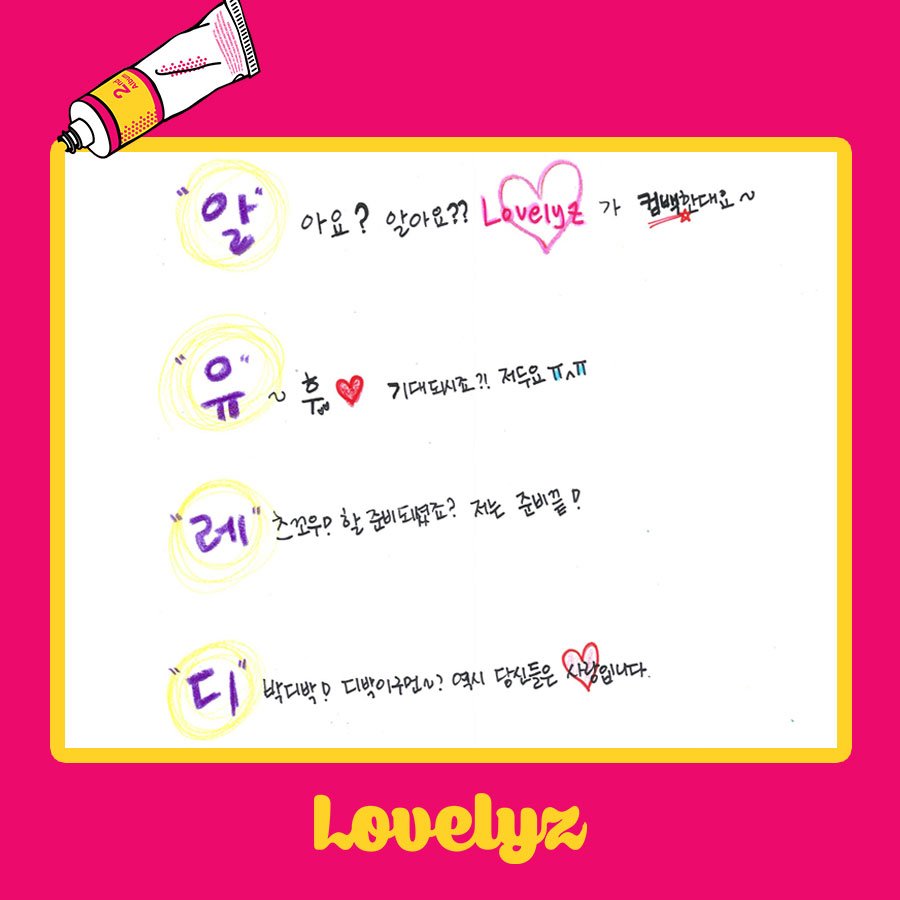 2nd Album
"알" 아요? 알아요?? Lovelyz 가 컴백한대요~
"유" ~ 휴 기대되시죠?! 저두요 ㅠ^ㅠ
"레" 츠꼬우! 할 준비되셨죠? 저는 준비끝!
"디" 박디박! 디박이구먼~? 역시 당신들은 사랑입니다.
Lovelyz